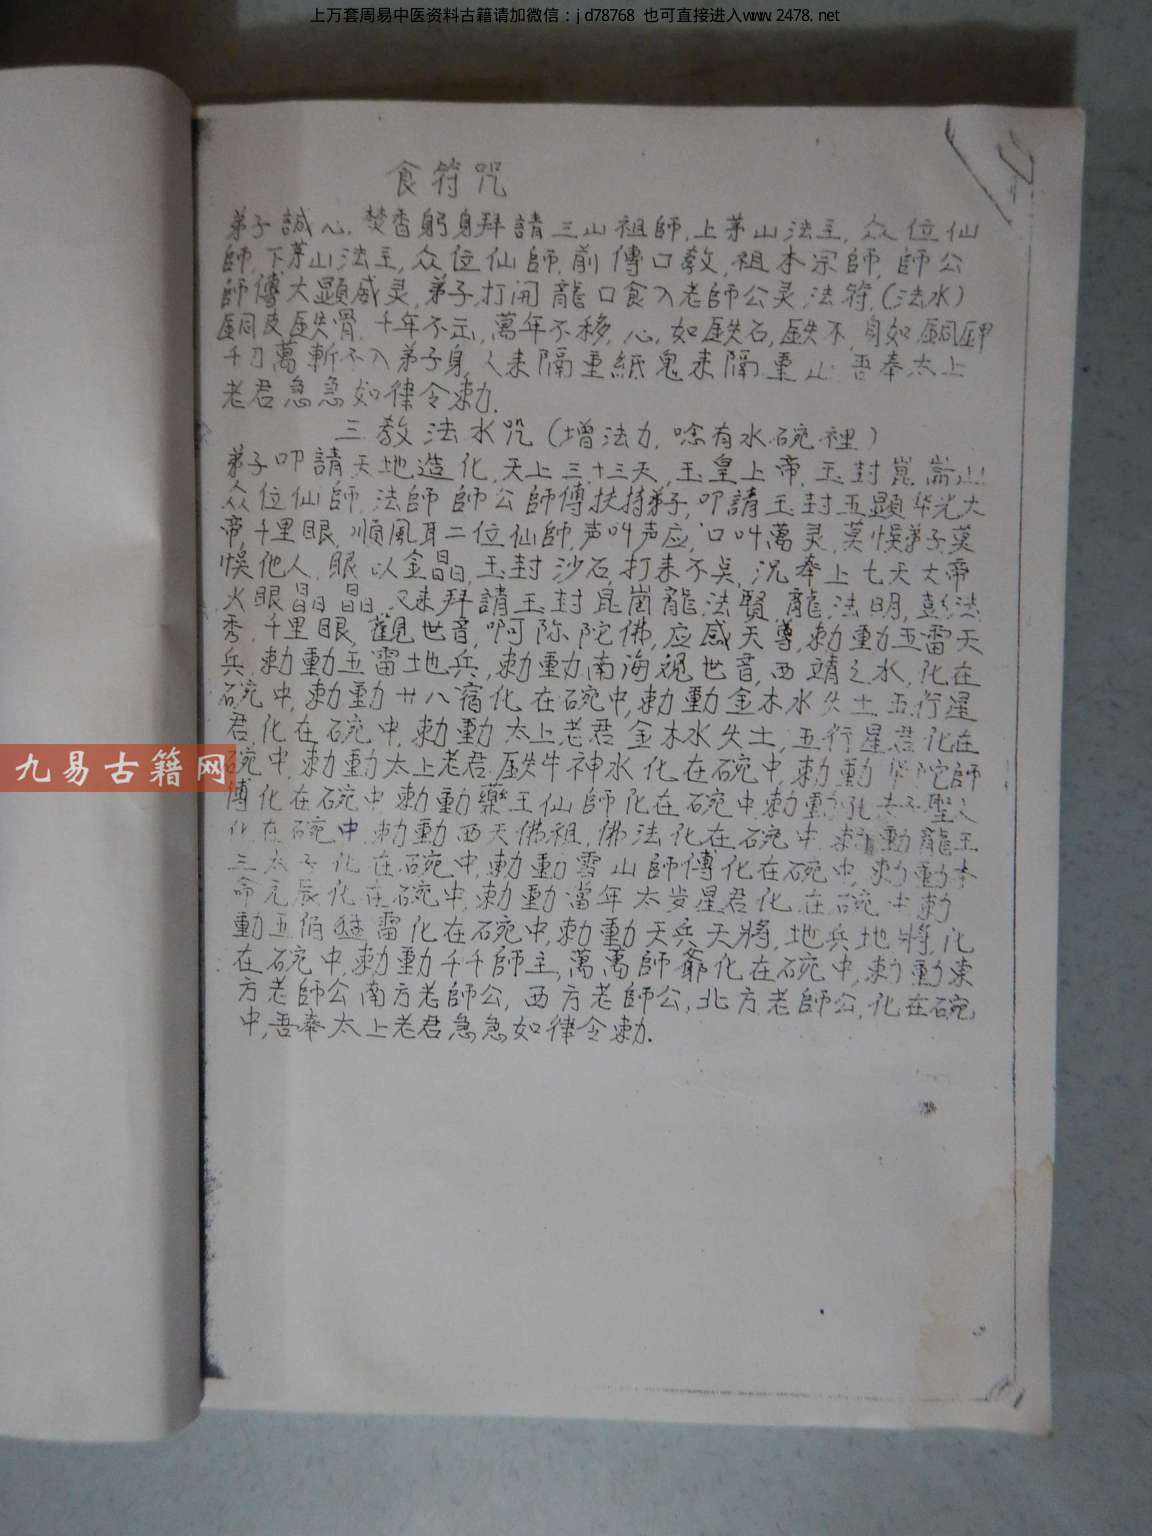 上万套周易中医资料古籍请加微信：jd78768 也可直接进入www.2478.net
食符咒
弟子誠心,焚香躬身拜請三山祖師,上茅山法主,众位仙
師,下茅山法主,众位仙師,前傳口教,祖本宗師,師公
師傅大顯威灵,弟子打開龍口食入老師公灵法符,(法水)
銅皮鉄骨,千年不,萬年不移,心如鉄石,鉄不,身如銅
千刀萬斬不入弟子身,人来隔重紙鬼来隔重山,吾奉太上
老君急急如律令勅.
三教法水咒(增法力,唸有水碗裡)
弟子叩請天地造化,天上三十三天,玉皇上帝,玉封崑崙山
众位仙師,法師師公師傅扶持弟子,叩請玉封五顯华光大
帝,千里眼,順風耳二位仙師,声叫声应,口叫萬灵,莫悞弟子莫
悞他人,眼以金晶,玉封沙石,打来不,奉上七天大帝
火眼晶晶,又来拜請玉封龍法賢,龍法明,彭法
秀,千里眼,觀世音,啊陀佛,应感天尊,勅動五雷天
兵,勅動五雷地兵,勅動南海观世音,西靖之水,化在
碗中,勅動廿八宿化在碗中,勅動金木水火土五行星
君化在碗中,勅動太上老君金木水火土,五行星君化在
碗中,勅動太上老君鉄牛神水化在碗中,勅動华陀師
傅化在碗中勅動藥王仙師化在碗中勅動孔夫子聖人
化在碗中,勅動西天佛祖,佛法化在碗中,勅動龍王
三太子化在碗中,勅動雪山師傅化在碗中,勅動本
命元辰化在碗中,勅動當年太岁星君化在碗中勅
動五佰猛雷化在碗中,勅動天兵天將,地兵地將,化
在碗中,勅動千千師主,萬萬師爺化在碗中,勅動東
方老師公南方老師公,西方老師公,北方老師公,化在碗
中,吾奉太上老君急急如律令勅.
九易古籍网